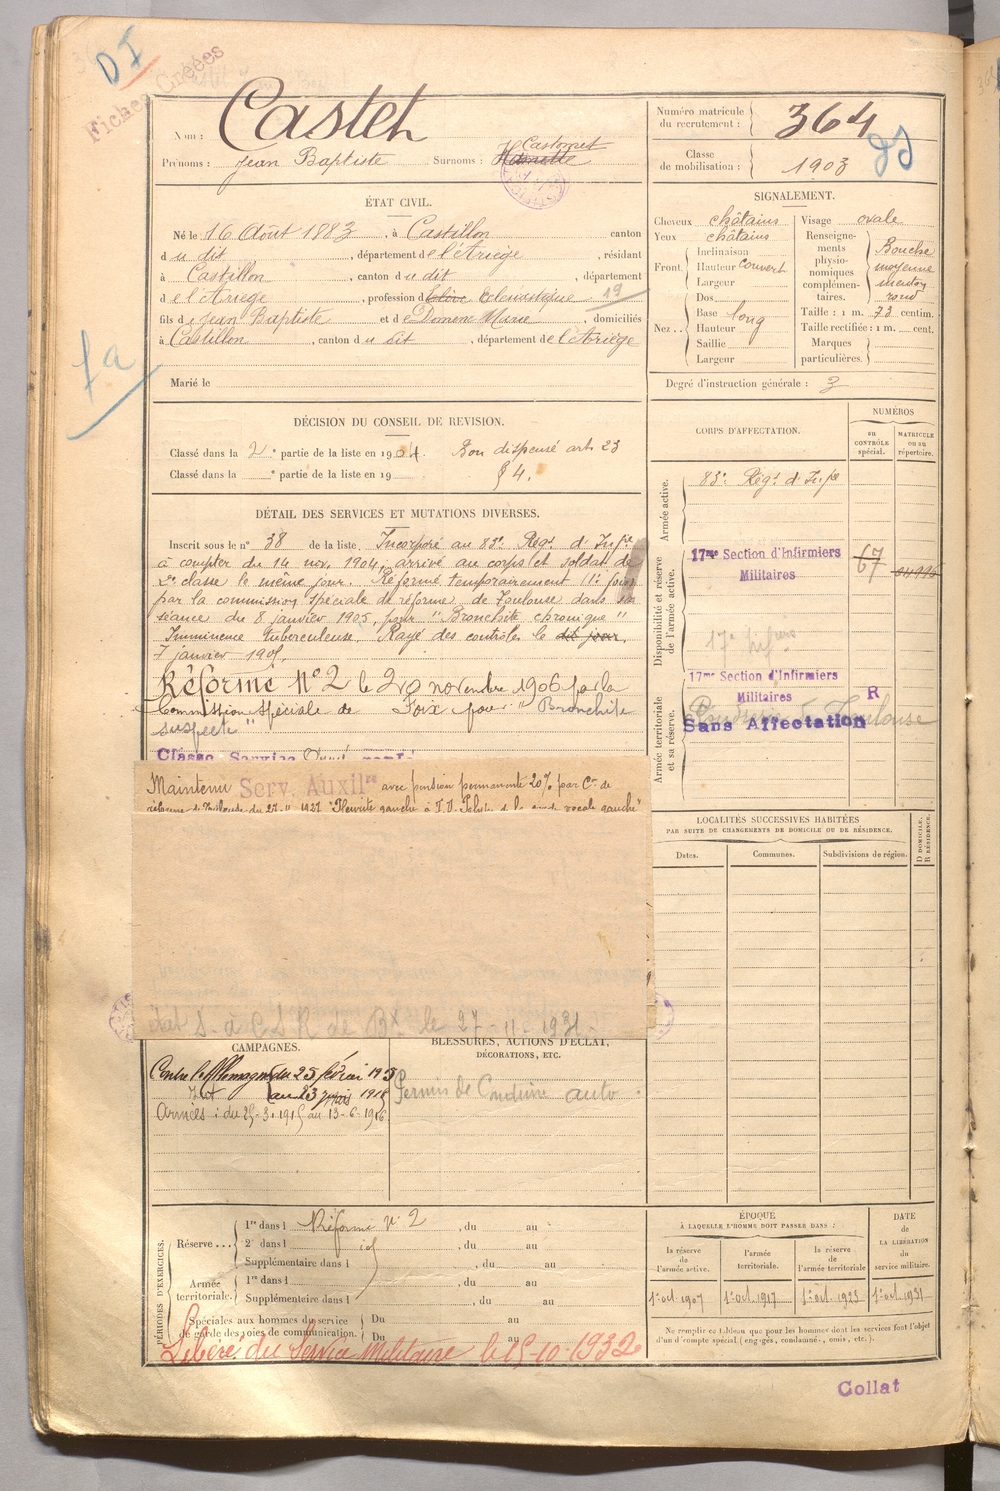 DI
Fiches Créées
Nom : Casteh
Prénoms : Jean Baptiste Surnoms : Castomet
Numéro matricule du recrutement : 364
Classe de mobilisation : 1903
ÉTAT CIVIL.
Né le 16 Août 1883, à Castillon canton
du dit, département de l'Ariège, résidant
à Castillon, canton du dit, département
de l'Ariège, profession d Eclésiastique 19
fils de Jean Baptiste et de Domenc Marie, domiciliés
à Castillon, canton du dit, département de l'Ariège
Marié le
SIGNALEMENT.
Cheveux châtains
Yeux châtains
Front
Inclinaison
Hauteur couvert
Largeur
Nez..
Dos
Base long
Hauteur
Saillie
Largeur
Visage ovale
Renseignements physionomiques complémentaires. Bouche moyenne menton rond
Taille : 1 m. 73 centim.
Taille rectifiée : 1 m. cent.
Marques particulières.
Degré d'instruction générale : 3
DÉCISION DU CONSEIL DE REVISION.
Classé dans la 2e partie de la liste en 1904. Bon dispensé art. 23
Classé dans la e partie de la liste en 19 § 4.
DÉTAIL DES SERVICES ET MUTATIONS DIVERSES.
Inscrit sous le n° 38 de la liste. Incorporé au 83e Regt d'Infie
à compter du 14 nov. 1904, arrivé au corps et soldat de
2e classe le même jour. Réformé temporairement (1e fois)
par la commission spéciale de réforme de Toulouse dans sa
séance du 8 janvier 1905, pour "Bronchite chronique"
Imminence tuberculeuse. Rayé des contrôles le dit jour,
7 janvier 1905.
Réformé N° 2 le 20 novembre 1906 par la
Commission spéciale de Foix pour "Bronchite
suspecte"
Classé Service Armé
Maintenu Serv. Auxilre avec pension permanente 20% par Cn de
réforme de Toulouse du 27-11-1931
à C S R de Bx le 27-11-1931-
CORPS D'AFFECTATION.
NUMÉROS
au CONTRÔLE spécial.
MATRICULE ou au répertoire.
Armée active.
83e Régt d'Infie
Disponibilité et réserve de l'armée active.
17me Section d'Infirmiers
Militaires
67
Armée territoriale et sa réserve.
17me Section d'Infirmiers
Militaires R
Sans Affectation
Toulouse
LOCALITÉS SUCCESSIVES HABITÉES
PAR SUITE DE CHANGEMENTS DE DOMICILE OU DE RÉSIDENCE.
Dates. Communes. Subdivisions de région.
D DOMICILE. R RÉSIDENCE.
CAMPAGNES.
Contre l'Allemagne du 25 février 1915
au 23 mars 1915
Armées : du 25-3-1915 au 13-6-1916
BLESSURES, ACTIONS D'ÉCLAT, DÉCORATIONS, ETC.
Permis de Conduire auto
PÉRIODES D'EXERCICES.
Réserve...
1re dans l Réformé N° 2, du au
2e dans l id, du au
Supplémentaire dans l , du au
Armée territoriale.
1re dans l , du au
Supplémentaire dans l , du au
Spéciales aux hommes du service de garde des voies de communication.
Du au
Du au
Libéré du Service Militaire le 15-10-1932
ÉPOQUE
À LAQUELLE L'HOMME DOIT PASSER DANS :
la réserve de l'armée active.
l'armée territoriale.
la réserve de l'armée territoriale
DATE de LA LIBÉRATION du service militaire.
1er oct. 1907 1er oct. 1917 1er oct. 1923 1er oct. 1931
Ne remplir ce tableau que pour les hommes dont les services font l'objet
d'un compte spécial (engagés, condamnés, omis, etc.).
Collat